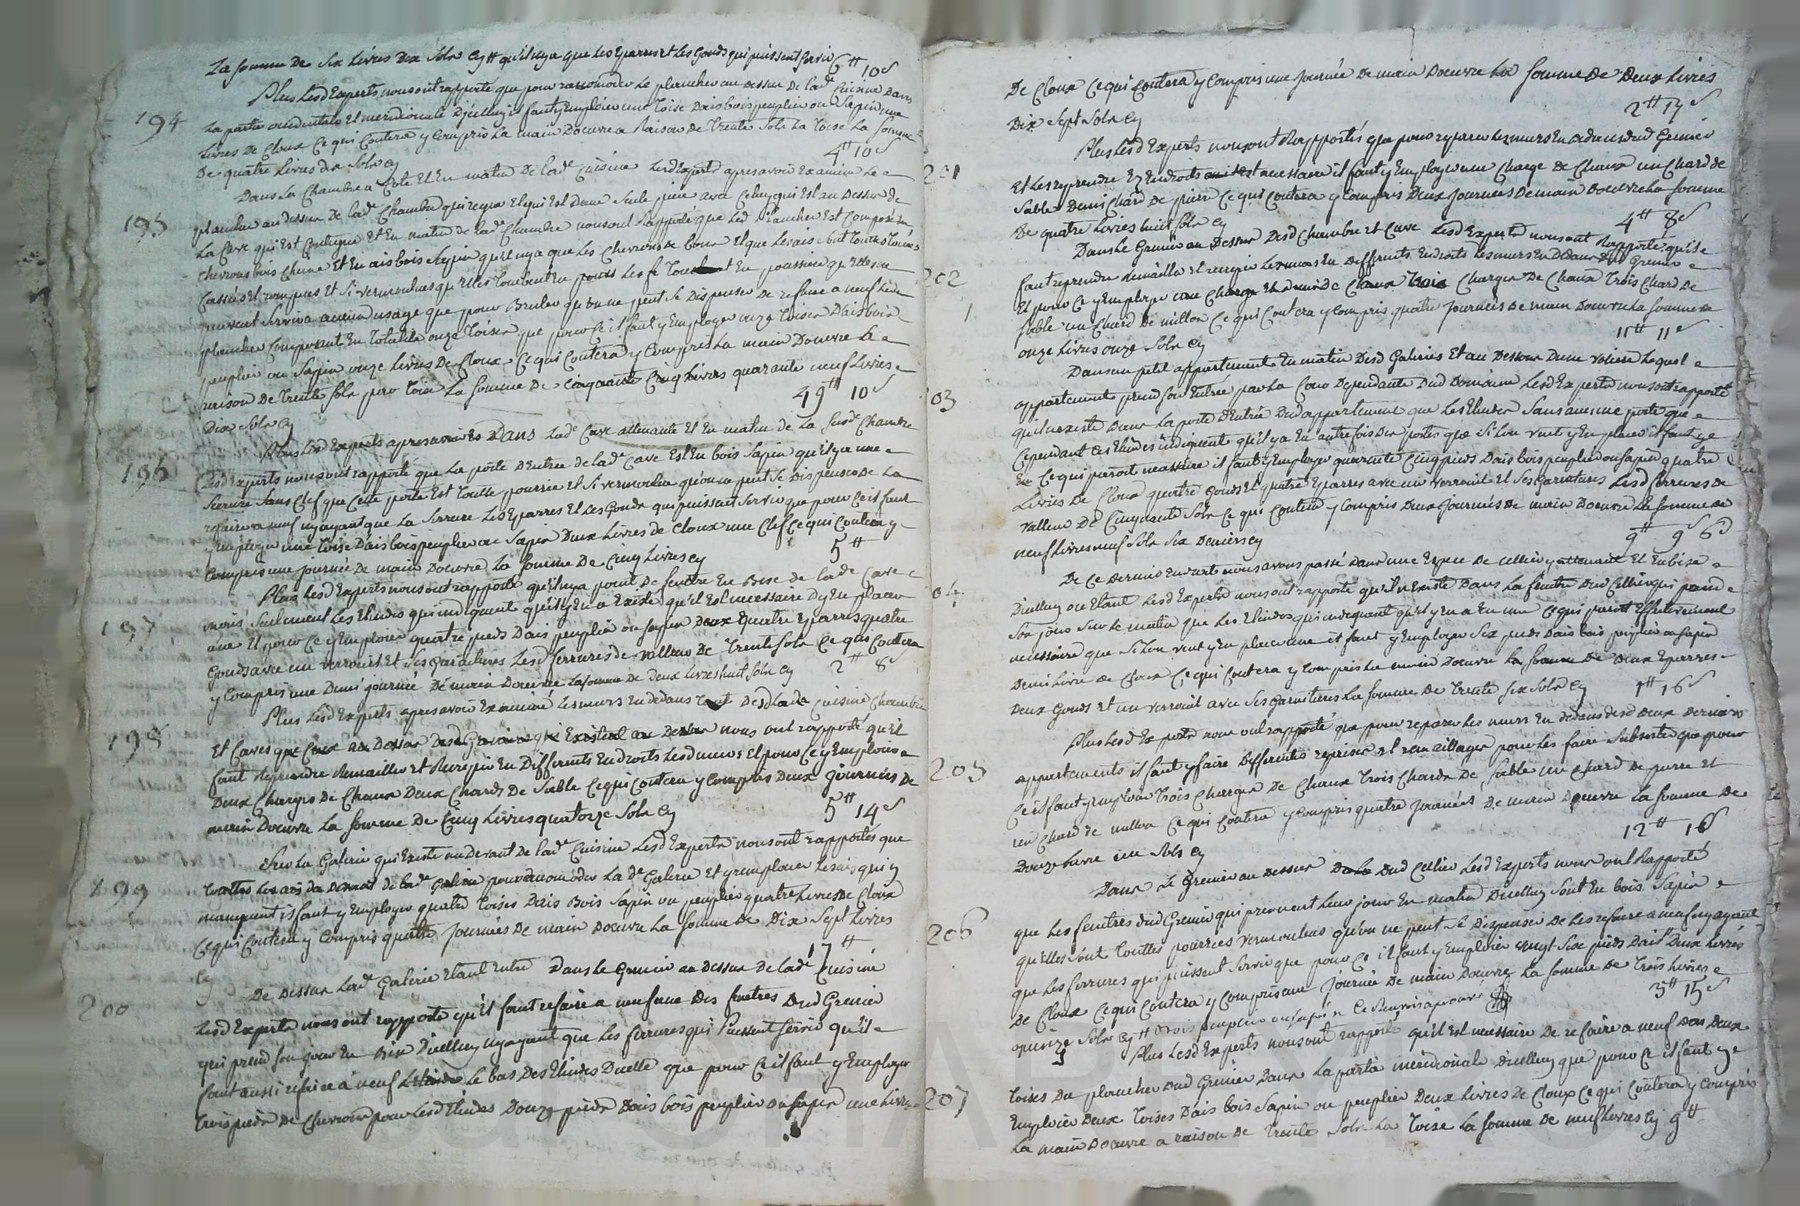 La somme de Six Livres Dix Sols Cy # qu'il n'y a que Les Eparres et Les Gonds qui puissent servir 6# 10s
194 Plus Lesd Experts nous ont rapporté que pour racomoder Le plancher au dessus de lad.e Cuisine Dans
La partie occidentale et meridionale D'icelluy il faut y Employer une Toise Dais bois peuplier ou Sapin une
Livres de Cloux Ce qui Coutera y Compris La main D'oeuvre a Raison de Trente Sols La Toise La Somme
De quatre Livres dix Sols Cy 4# 10s
195 Dans La Chambre a Coté Et En matin de lad.e Cuisine Lesd Experts apres avoir Examiné Le
plancher au dessus de lad.e Chambre qui regne Et qui Est D'une Seule piece avec Celuy qui Est au Dessus de
La Cave qui Est Contigue Et En matin de lad.e Chambre nous ont Rapporté que Led. Plancher Est Composé En
chevrons bois Chesne Et En ais bois Sapin qu'il n'y a que Les Chevrons de bons Et que Les ais Sont Toutes
Cassées et rompues Et Si vermoulues qu'Elles Tombent En Poussiere qu'Elles ne
peuvent Servir a aucun usage que pour Bruler qu'on ne peut Se Dispenser de refaire a neuf Led.
plancher Composant En Totalité onze Toises que pour Ce il faut y Employer onze Toises Dais bois
peuplier ou Sapin onze Livres De Cloux Ce qui Coutera y Compris La main D'oeuvre a
raison de Trente Sols par Toise La Somme De Cinquante Cinq Livres quarante neuf Livres
Dix Sols Cy 49# 10s
196 Plus Lesd Experts apres avoir Dans Lad.e Cave attenante et En matin de La Susd.e Chambre
Lesd Experts nous ont rapporté que La porte D'entrée de lad.e Cave Est En bois Sapin qu'il y a une
Serrure Sans Clef que Cette porte Est Toutte pourrie et Si vermoulue qu'on ne peut Se Dispenser de La
refaire a neuf n'y ayant que La Serrure Les Eparres Et Les Gonds qui puissent Servir que pour Ce il faut
y Employer une Toise Dais bois peuplier ou Sapin Deux Livres de Cloux une Clef Ce qui Coutera y
Compris une journée de main D'oeuvre La Somme De Cinq Livres Cy 5#
197 Plus Lesd Experts nous ont rapporté qu'il n'y a point de fenetre En Bise de lad.e Cave
mais Seulement Les Etindes qui indiquent qu'il y En a Existé qu'il Est necessaire D'y En placer
une Et pour Ce y Employer quatre pieds Dais peuplier ou Sapin Deux Quatre Eparres quatre
Gonds avec un verrouil Et Ses Garnitures Lesd ferrures de valleur De Trente Sols Ce qui Coutera
y Compris une Demi journée De main D'oeuvre La Somme de Deux Livres huit Sols Cy 2# 8s
198 Plus Lesd Experts apres avoir Examiné Les murs En dedans Tant Desd Lad.e Cuisine Chambre
Et Caves que Ceux au Dessus Desd Greniers qui Existent au Dessus nous ont rapporté qu'il
faut Reprendre Remailler et Recrepir En Differents Endroits Lesd murs Et pour Ce y Employer
Deux Charges de Chaux Deux Chards De Sable Ce qui Coutera y Compris Deux journées De
main D'oeuvre La Somme De Cinq Livres quatorze Sols Cy 5# 14s
199 Sur La Galerie qui Existe au Devant de lad.e Cuisine Lesd Experts nous ont rapportés que
touttes Les ais du Devant de lad.e Galerie pour racomoder La d.e Galerie Et y remplacer Les ais qui y
manquent il faut y Employer quatre Toises Dais Bois Sapin ou peuplier quatre Livres De Cloux
Ce qui Coutera y Compris quatre journées De main D'oeuvre La Somme de Dix Sept Livres
Cy 17#
200 De Dessus Lad.e Galerie Etant Entré Dans Le Grenier au Dessus de lad.e Cuisine
Lesd Experts nous ont rapporté qu'il faut refaire a neuf une Des fenetres Dud Grenier
qui prend Son jour En Bise D'icelluy n'y ayant que Les ferrures qui Puissent Servir qu'il
faut aussi refaire a neuf Le bas Des Etindes D'icelle que pour Ce il faut y Employer
Trois pieds de Chevron pour Lesd Etindes Douze pieds Dais bois peuplier ou Sapin une Livre
De Cloux Ce qui Coutera y Compris une Journée De main D'oeuvre La Somme De Deux Livres
Dix Sept Sols Cy 2# 17s
201 Plus Lesd Experts nous ont Rapportés que pour reparer Les murs En dedans Dud Grenier
Et Les reprendre Es Endroits ou il est necessaire il faut y Employer une Charge De Chaux un Chard de
Sable Demi Chard de pierre Ce qui Coutera y Compris Deux Journées De main D'oeuvre La Somme
De quatre Livres huit Sols Cy 4# 8s
202 Dans Le Grenier au Dessus Desd Chambre et Cave Lesd Experts nous ont Rapporté qu'il
faut reprendre remailler et recrepir Les murs En Differents Endroits Les murs En Dedans Dud Grenier
Et pour Ce y Employer une Charge Et demi de Chaux Trois Charges De Chaux Trois Chard De
Sable un Chard De mellon Ce qui Coutera y Compris quatre Journées De main D'oeuvre La Somme de
onze Livres onze Sols Cy 11# 11s
203 Dans un petit appartement En matin Desd Galeries Et au Dessous D'une voliere Lequel
appartement prend Son Entrée par La Cour Dependante Dud Domaine Lesd Experts nous ont rapporté
qu'il n'existe Dans La porte D'entrée Dud appartement que Les Etindes Sans aucune porte que
Cependant Ces Etindes indiquent qu'il y a En autrefois Des portes que Si L'on veut y En placer il faut y
Ce qui paroit necessaire il faut y Employer quarante Cinq pieds Dais bois peuplier ou Sapin quatre
Livres De Cloux quatre Gonds Et quatre Eparres avec un verrouil Et Ses Garnitures Lesd ferrures De
valleur De Cinquante Sols Ce qui Coutera y Compris Deux Journées De main D'oeuvre La Somme de
neuf Livres neuf Sols Six Deniers Cy 9# 9s 6d
204 De Ce Dernier Endroit nous avons passé Dans une Espece De Cellier y attenant Et En bise
D'icelluy ou Etant Lesd Experts nous ont rapporté qu'il n'Existe Dans La fenetre Dud Cellier qui prend
Son jour Sur Le matin que Les Etindes qui indiquent qu'il y en a En une Ce qui paroit Effectivement
necessaire que Si L'on veut y En placer une il faut y Employer Six pieds Dais bois peuplier ou Sapin
Demi Livre de Cloux Ce qui Coutera y Compris La main D'oeuvre La Somme De Deux Eparres
Deux Gonds et un verrouil avec Ses Garnitures La Somme De Trente Six Sols Cy 1# 16s
205 Plus Lesd Experts nous ont rapporté que pour reparer Les murs En dedans desd Deux Derniers
appartements il faut y faire Differentes reprises Et remaillages pour Les faire Subsister que pour
Ce il faut y Employer Trois Charges De Chaux Trois Chards De Sable un Chard de pierre Et
un Chard de mellon Ce qui Coutera y Compris quatre Journées De main D'oeuvre La Somme De
Douze Livres un Sols Cy 12# 1s
206 Dans Le Grenier au Dessus Dud Cellier Lesd Experts nous ont Rapporté
que Les fenetres Dud Grenier qui prennent Leur jour En matin D'icelluy Sont En bois Sapin
qu'elles Sont Touttes pourries vermoulues qu'on ne peut Se Dispenser De Les refaire a neuf n'y ayant
que Les ferrures qui puissent Servir que pour Ce il faut y Employer vingt Six pieds Dais Deux Livres
De Cloux Ce qui Coutera y Compris une Journée De main D'oeuvre La Somme De Trois Livres
quinze Sols Cy # Bois peuplier ou Sapin Ce Renvoi approuvé 3# 15s
207 Plus Lesd Experts nous ont rapporté qu'il Est necessaire De refaire a neuf Deux
Toises Du plancher Dud Grenier Dans La partie meridionale D'icelluy que pour Ce il faut y
Employer Deux Toises Dais bois Sapin ou peuplier Deux Livres De Cloux Ce qui Coutera y Compris
La main D'oeuvre a raison De Trente Sols La Toise La Somme De neuf Livres Cy 9#